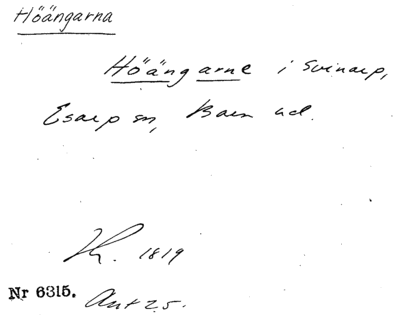 Höängarna
Höängarne i Svinarp,
Esarp sn, Bara hd.
Kh. 1819
Nr 6315.
Ant 25.